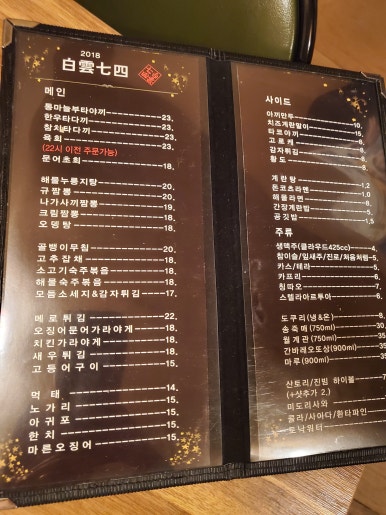 2018
白雲七四
메인
통마늘부타야끼 23,
한우타다끼 23,
참치타다끼 23,
육회 23,
(22시 이전 주문가능)
문어초회 18,
해물누룽지탕 20,
규짬뽕 20,
나가사끼짬뽕 19,
크림짬뽕 20,
오뎅탕 18,
골뱅이무침 20,
고추잡채 18,
소고기숙주볶음 18,
해물숙주볶음 18,
모듬소세지&감자튀김 17,
메로튀김 22,
오징어문어가라아게 18,
치킨가라아게 18,
새우튀김 18,
고등어구이 15,
먹태 14,
노가리 15,
아귀포 15,
한치 15,
마른오징어 15,
사이드
야끼만두 8,
치즈계란말이 10,
타코야끼 15,
고로케
감자튀김
황도
계란탕
돈코츠라멘 1,2
해물라면
간장계란밥 5,
공깃밥 1,
주류
생맥주(클라우드425cc) 4,
참이슬/잎새주/진로/처음처럼 5,
카스/테라 5,
카프리 5,
칭따오 7,
스텔라아르투아 6,
도쿠리 (냉&온) 8,
송죽매 (750ml) 30,
월계관 (750ml) 35
간바레오또상(900ml) 35
마루(900ml)
산토리/진빔 하이볼 7,
(+샷추가 2,)
미도리사와
콜라/사이다/환타파인
토닉워터